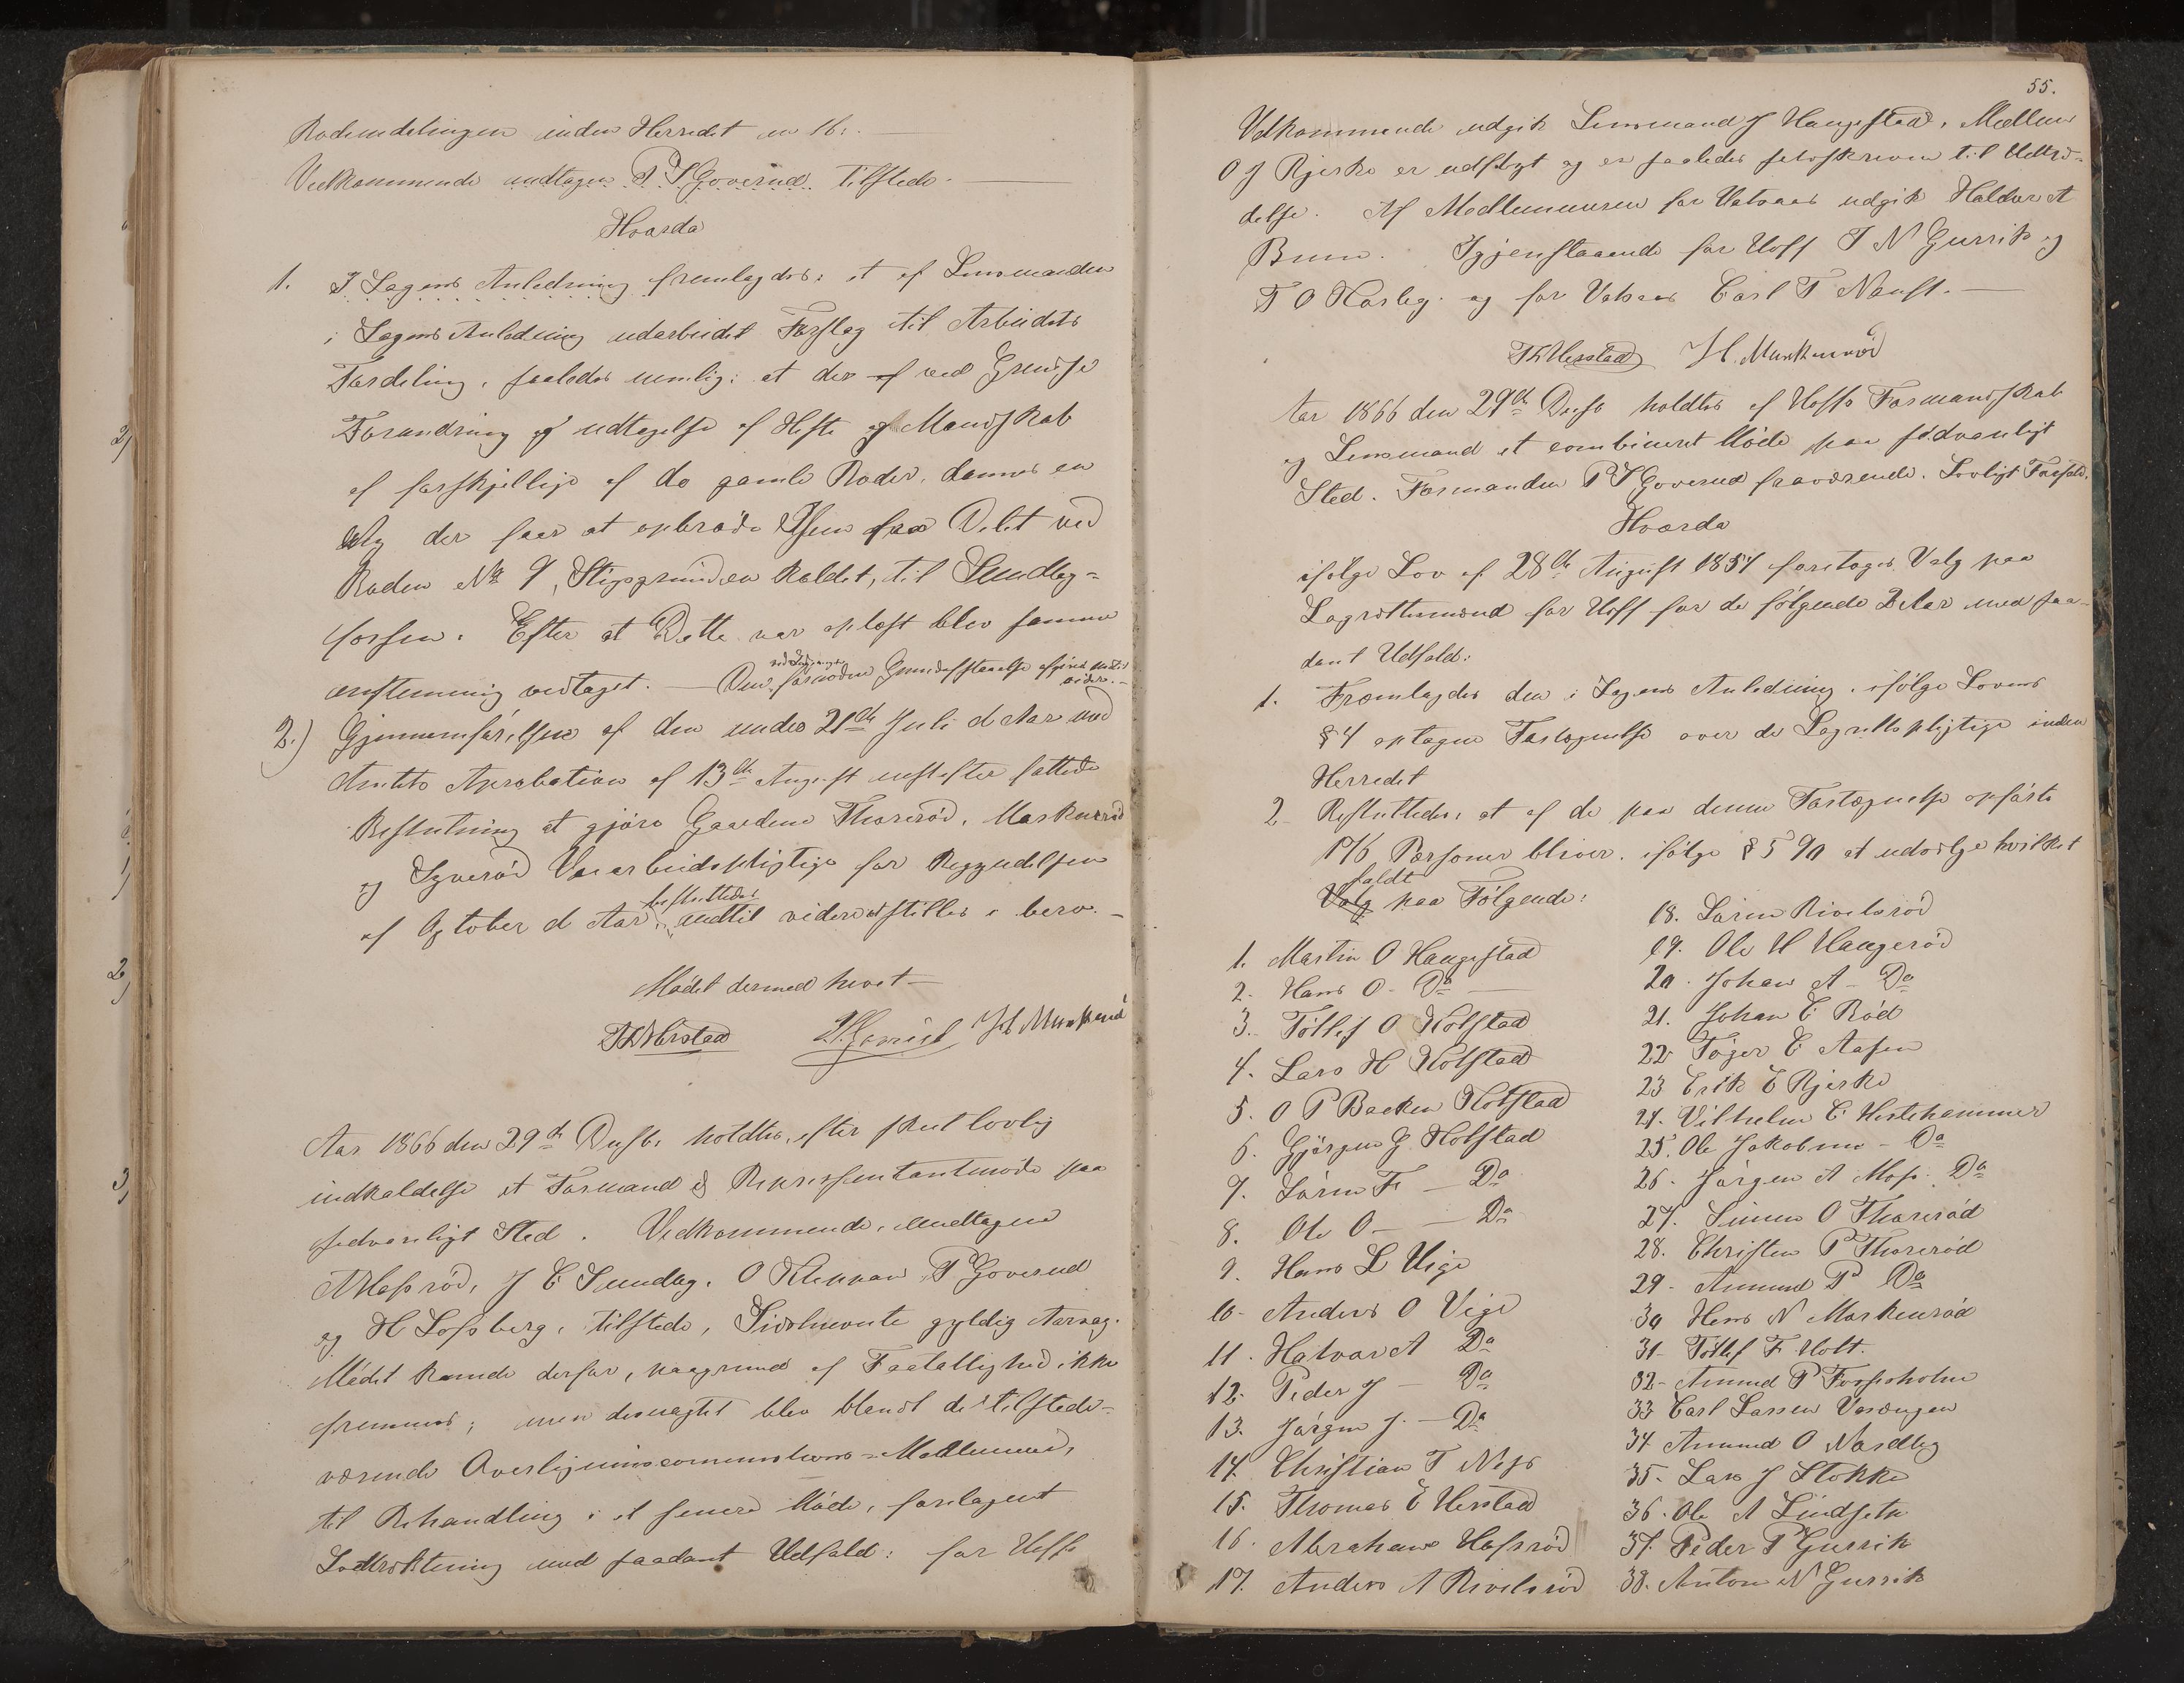 Rodeindelingen inden Herredet m 16:
Vedkommende undtagen P S Goverud tilstede.
Hvorda
1. I Sagens Anledning fremlagdes: et af Lensmanden
i Sagens Anledning udarbeidet Forslag til Arbeidets
Fordeling, saaledes nemlig: at der af ved Grendse
Forandring og udtagelse af Heste og Mandskab
af forskjellige af de gamle Roder, dannes en
der faar at opbrøde Sneen fra Delet ved
Roden No 9, Stigsgrinden kaldet, til Sundby=
fossen. Efter at Dette var oplæst blev samme
enstemmig vedtaget. — Den fornødne
2.) Gjennemførelsen af den under 21de Juli d Aar med
Amtets Aprobation af 13de August næstefter fattede
Beslutning at gjøre Gaardene Thorerød, Maskerød
og Sverød Veiarbeidspligtige fra Begyndelsen
besluttedes
af October d Aar, indtil videre at stilles i bero. —
Mødet dermed hævet —
Th Herstad H. Munkerød
Aar 1866 den 29de Decbr. holdtes, efter skeet lovlig
indkaldelse et Formand & Repræsentantmøde paa
sedvanligt Sted. Vedkommende, undtagen
Hassrød, J C Sundby, O Kleppan, P Goverud
og H Lofsberg, tilstede, Sidstnævnte gyldig Aarsag.
Mødet kunde derfor, paagrund af Faatallighed ikke
fremmes; men desuagtet blev blandt de tilstede=
værende Overligningscommissions=Medlemmer,
til Behandling i et senere Møde, foretaget
Lodtrækning med saadant Udfald: for Hoffs
55.
Vedkommende udgik Lensmand J Haugestad. Medlem
O J Bjerke er udflyt og er saaledes selvskreven til Udtræ=
delse. Af Medlemmerne for Vataas udgik Haldvor A
Bruun. Igjenstaaende for Hoff T N Gurrik og
T O Horleg. og for Vataas Carl T Naust. —
Th Herstad H. Munkerød
Aar 1866 den 29de Decbr holdtes af Hoffs Formandskab
og Lensmand et combineret Møde paa sædvanligt
Sted. Formanden P S Goverud fraværende. Lovligt Forfald.
Hvorda
ifølge Lov af 28de August 1854 foretoges Valg paa
Lagrettemænd for Hoff for de følgende 2 Aar med saa-
dant Udfald:
1. Fremlagdes den i Sagens Anledning, ifølge Lovens
§ 4 optagne Fortegnelse over de Lagrettepligtige inden
Herredet
2 Besluttedes, at af de paa denne Fortegnelse opførte
176 Personer bliver, ifølge § 5 90 at udvælge hvilket
faldt
Valg paa Følgende:
1. Martin O Haugestad
2. Hans O - Do
3. Tollef O Holstad
4. Lars H Holstad
5. O P Backen Holstad
6. Gjørgen G Holstad
7. Søren F — Do
8. Ole O — Do
9. Hans L Vige
10 - Anders O Vige
11. Halvor A Do
12. Peder J — Do
13. Jørgen J. — Do
14. Christian T Ness
15. Thomas E Herstad
16. Abraham Hassrød
17. Anders A Rivelsrød
18. Søren Rivelsrød
19. Ole H Haugerød
20. Johan A - Do
21. Johan C Rød
22 Tøger C Aasen
23 Erik E Bjerke
24. Vilhelm C Hestehammer
25. Ole Jakobsen - Do
26. Jørgen A Moss. Do
27. Simen O Thorerød
28. Christen P Thorerød
29 - Amund P Do
30 Hans N Maskerød
31 - Tollef F Holt.
32 - Amund P Fossesholm
33 Carl Larsen Vasengen
34 Amund O Nordby
35. Lars J Stokke
36. Ole A Lindseth
37. Peder T Gurrik
38. Anton N Gurrik